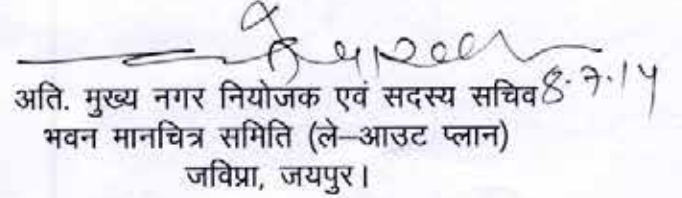 अति. मुख्य नगर नियोजक एवं सदस्य सचिव 8.7.14
भवन मानचित्र समिति (ले–आउट प्लान)
जविप्रा, जयपुर।